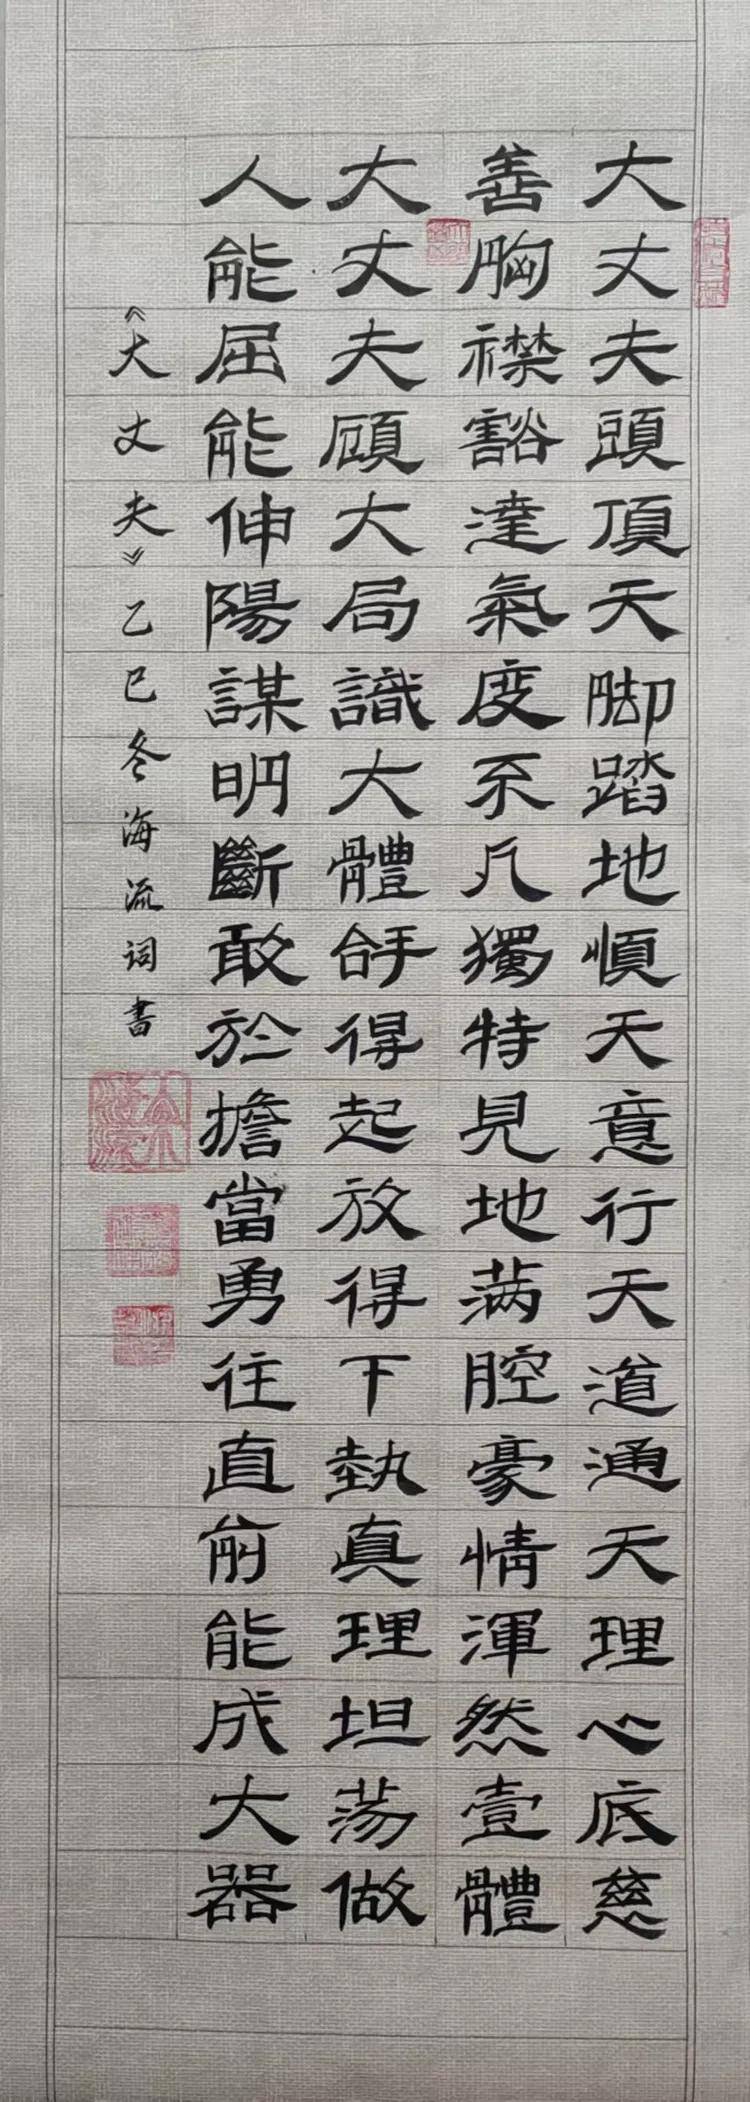 大丈夫頭頂天脚踏地順天意行天道通天理心底慈
善胸襟豁達氣度不凡獨特見地满腔豪情渾然壹體
大丈夫頋大局識大體拿得起放得下執真理坦荡做
人能屈能伸陽謀明斷敢於擔當勇往直前能成大器
《大丈夫》乙巳冬海流词書